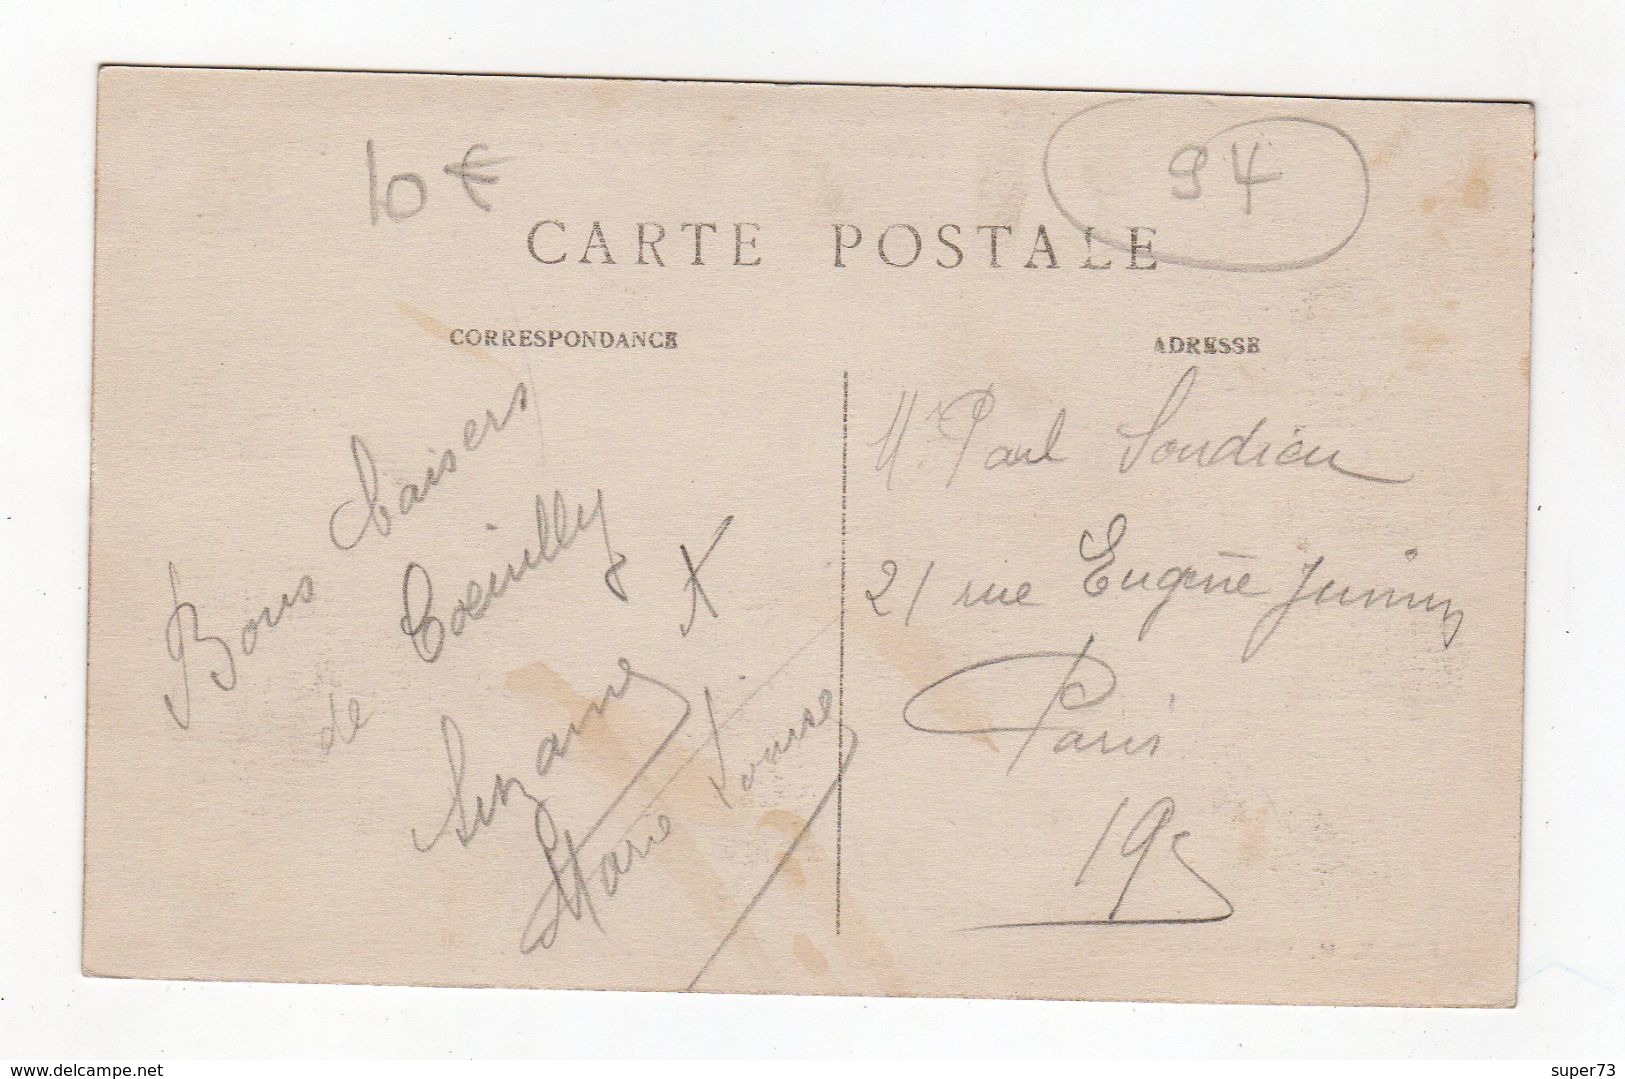 10 €
94
CARTE POSTALE
CORRESPONDANCE
ADRESSE
Bons baisers
de Coeuilly
Suzanne X
Marie Louise
Mr Paul Soudieu
21 rue Eugène Jumin
Paris
19e
www.delcampe.net
super73